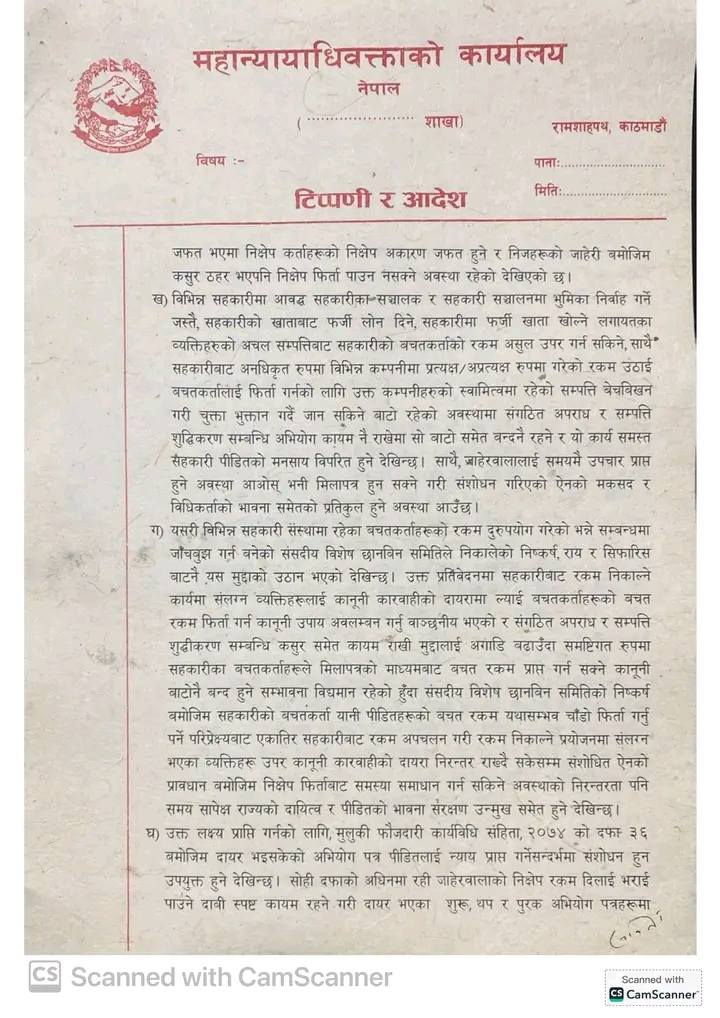 महान्यायाधिवक्ताको कार्यालय
नेपाल
( ........................ शाखा)
रामशाहपथ, काठमाडौं
विषय :-
पाना:..............................
मिति:..............................
टिप्पणी र आदेश
जफत भएमा निक्षेप कर्ताहरूको निक्षेप अकारण जफत हुने र निजहरूको जाहेरी बमोजिम
कसुर ठहर भएपनि निक्षेप फिर्ता पाउन नसक्ने अवस्था रहेको देखिएको छ।
ख) विभिन्न सहकारीमा आवद्ध सहकारीका सञ्चालक र सहकारी सञ्चालनमा भुमिका निर्वाह गर्ने
जस्तै, सहकारीको खाताबाट फर्जी लोन दिने, सहकारीमा फर्जी खाता खोल्ने लगायतका
व्यक्तिहरुको अचल सम्पत्तिबाट सहकारीको बचतकर्ताको रकम असुल उपर गर्न सकिने, साथै
सहकारीबाट अनधिकृत रुपमा विभिन्न कम्पनीमा प्रत्यक्ष/अप्रत्यक्ष रुपमा गरेको रकम उठाई
बचतकर्तालाई फिर्ता गर्नको लागि उक्त कम्पनीहरुको स्वामित्वमा रहेको सम्पत्ति बेचबिखन
गरी चुक्ता भुक्तान गर्दै जान सकिने बाटो रहेको अवस्थामा संगठित अपराध र सम्पत्ति
शुद्धिकरण सम्बन्धि अभियोग कायम नै राखेमा सो बाटो समेत बन्दनै रहने र यो कार्य समस्त
सहकारी पीडितको मनसाय विपरित हुने देखिन्छ। साथै, जाहेरवालालाई समयमै उपचार प्राप्त
हुने अवस्था आओस् भनी मिलापत्र हुन सक्ने गरी संशोधन गरिएको ऐनको मकसद र
विधिकर्ताको भावना समेतको प्रतिकुल हुने अवस्था आउँछ।
ग) यसरी विभिन्न सहकारी संस्थामा रहेका बचतकर्ताहरूको रकम दुरुपयोग गरेको भन्ने सम्बन्धमा
जाँचबुझ गर्न बनेको संसदीय विशेष छानबिन समितिले निकालेको निष्कर्ष, राय र सिफारिस
बाटनै यस मुद्दाको उठान भएको देखिन्छ। उक्त प्रतिवेदनमा सहकारीबाट रकम निकाल्ने
कार्यमा संलग्न व्यक्तिहरूलाई कानूनी कारवाहीको दायरामा ल्याई बचतकर्ताहरूको बचत
रकम फिर्ता गर्न कानूनी उपाय अवलम्बन गर्नु वाञ्छनीय भएको र संगठित अपराध र सम्पत्ति
शुद्धीकरण सम्बन्धि कसुर समेत कायम राखी मुद्दालाई अगाडि बढाउँदा समष्टिगत रुपमा
सहकारीका बचतकर्ताहरूले मिलापत्रको माध्यमबाट बचत रकम प्राप्त गर्न सक्ने कानूनी
बाटोनै बन्द हुने सम्भावना विद्यमान रहेको हुँदा संसदीय विशेष छानबिन समितिको निष्कर्ष
बमोजिम सहकारीको बचतकर्ता यानी पीडितहरूको बचत रकम यथासम्भव चाँडो फिर्ता गर्नु
पर्ने परिप्रेक्ष्यबाट एकातिर सहकारीबाट रकम अपचलन गरी रकम निकाल्ने प्रयोजनमा संलग्न
भएका व्यक्तिहरू उपर कानूनी कारवाहीको दायरा निरन्तर राख्दै सकेसम्म संशोधित ऐनको
प्रावधान बमोजिम निक्षेप फिर्ताबाट समस्या समाधान गर्न सकिने अवस्थाको निरन्तरता पनि
समय सापेक्ष राज्यको दायित्व र पीडितको भावना संरक्षण उन्मुख समेत हुने देखिन्छ।
घ) उक्त लक्ष्य प्राप्ति गर्नको लागि, मुलुकी फौजदारी कार्यविधि संहिता, २०७४ को दफा ३६
बमोजिम दायर भइसकेको अभियोग पत्र पीडितलाई न्याय प्राप्त गर्नेसन्दर्भमा संशोधन हुन
उपयुक्त हुने देखिन्छ। सोही दफाको अधिनमा रही जाहेरवालाको निक्षेप रकम दिलाई भराई
पाउने दावी स्पष्ट कायम रहने गरी दायर भएका शुरू, थप र पुरक अभियोग पत्रहरूमा
CS Scanned with CamScanner
Scanned with
CS CamScanner